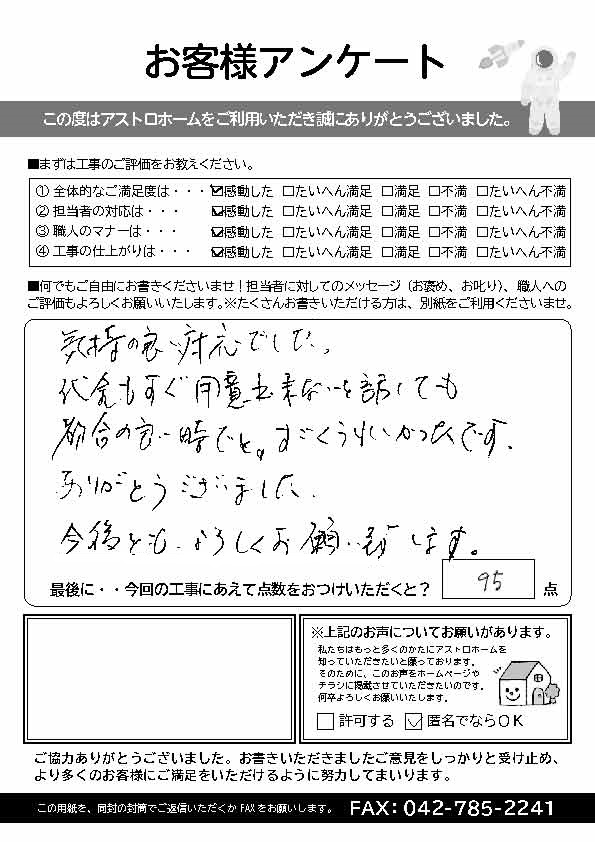 お客様アンケート
この度はアストロホームをご利用いただき誠にありがとうございました。
■まずは工事のご評価をお教えください。
① 全体的なご満足度は・・・ ☑感動した □たいへん満足 □満足 □不満 □たいへん不満
② 担当者の対応は・・・ ☑感動した □たいへん満足 □満足 □不満 □たいへん不満
③ 職人のマナーは・・・ ☑感動した □たいへん満足 □満足 □不満 □たいへん不満
④ 工事の仕上がりは・・・ ☑感動した □たいへん満足 □満足 □不満 □たいへん不満
■何でもご自由にお書きくださいませ！担当者に対してのメッセージ（お褒め、お叱り）、職人への
ご評価もよろしくお願いいたします。※たくさんお書きいただける方は、別紙をご利用くださいませ。
気持の良い対応でした。
代金もすぐ用意出来ないと話しても
都合の良い時でと。すごくうれしかったです。
ありがとうございました。
今後とも、よろしくお願い致します。
最後に・・今回の工事にあえて点数をおつけいただくと？ 95 点
※上記のお声についてお願いがあります。
私たちはもっと多くのかたにアストロホームを
知っていただきたいと願っております。
そのために、このお声をホームページや
チラシに掲載させていただきたいのです。
何卒よろしくお願いいたします。
□ 許可する ☑ 匿名でならＯＫ
ご協力ありがとうございました。お書きいただきましたご意見をしっかりと受け止め、
より多くのお客様にご満足をいただけるように努力してまいります。
この用紙を、同封の封筒でご返信いただくか FAX をお願いします。 FAX：042-785-2241